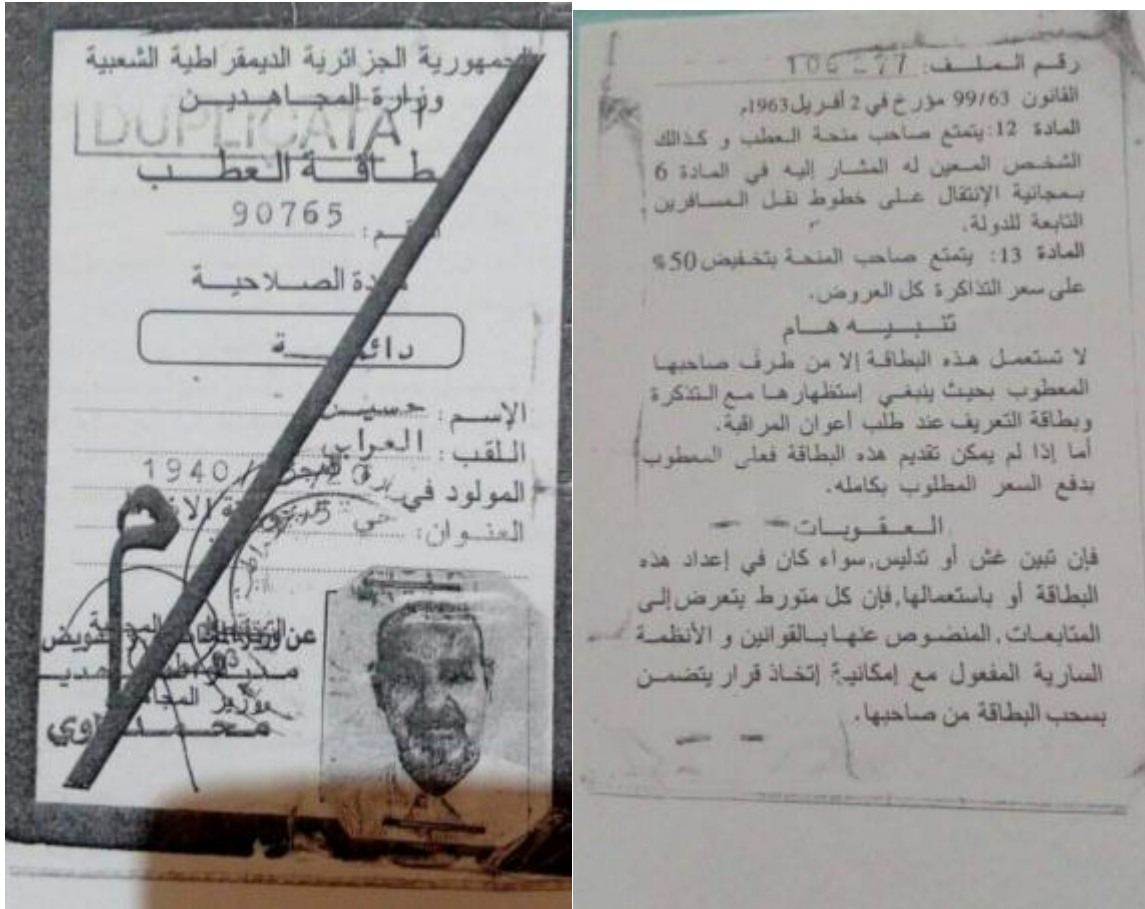 الجمهورية الجزائرية الديمقراطية الشعبية
وزارة المجاهدين
DUPLICATA
بطاقة العطب
الرقم: 90765
مدة الصلاحية
دائمة
الإسم: حسين
اللقب: العرابي
المولود في 1940
العنوان: حي
محمد
رقم الملف:
القانون 99/63 مؤرخ في 2 أفريل 1963م
المادة 12: يتمتع صاحب منحة العطب و كذالك
الشخص المعين له المشار إليه في المادة 6
بمجانية الإنتقال على خطوط نقل المسافرين
التابعة للدولة.
المادة 13: يتمتع صاحب المنحة بتخفيض 50%
على سعر التذاكرة كل العروض.
تنبيه هام
لا تستعمل هذه البطاقة إلا من طرف صاحبها
المعطوب بحيث ينبغي إستظهارها مع التذكرة
وبطاقة التعريف عند طلب أعوان المراقبة.
أما إذا لم يمكن تقديم هذه البطاقة فعلى المعطوب
بدفع السعر المطلوب بكامله.
العقوبات
فإن تبين غش أو تدليس,سواء كان في إعداد هذه
البطاقة أو باستعمالها,فإن كل متورط يتعرض إلى
المتابعات, المنصوص عنها بالقوانين و الأنظمة
السارية المفعول مع إمكانية إتخاذ قرار يتضمن
بسحب البطاقة من صاحبها.